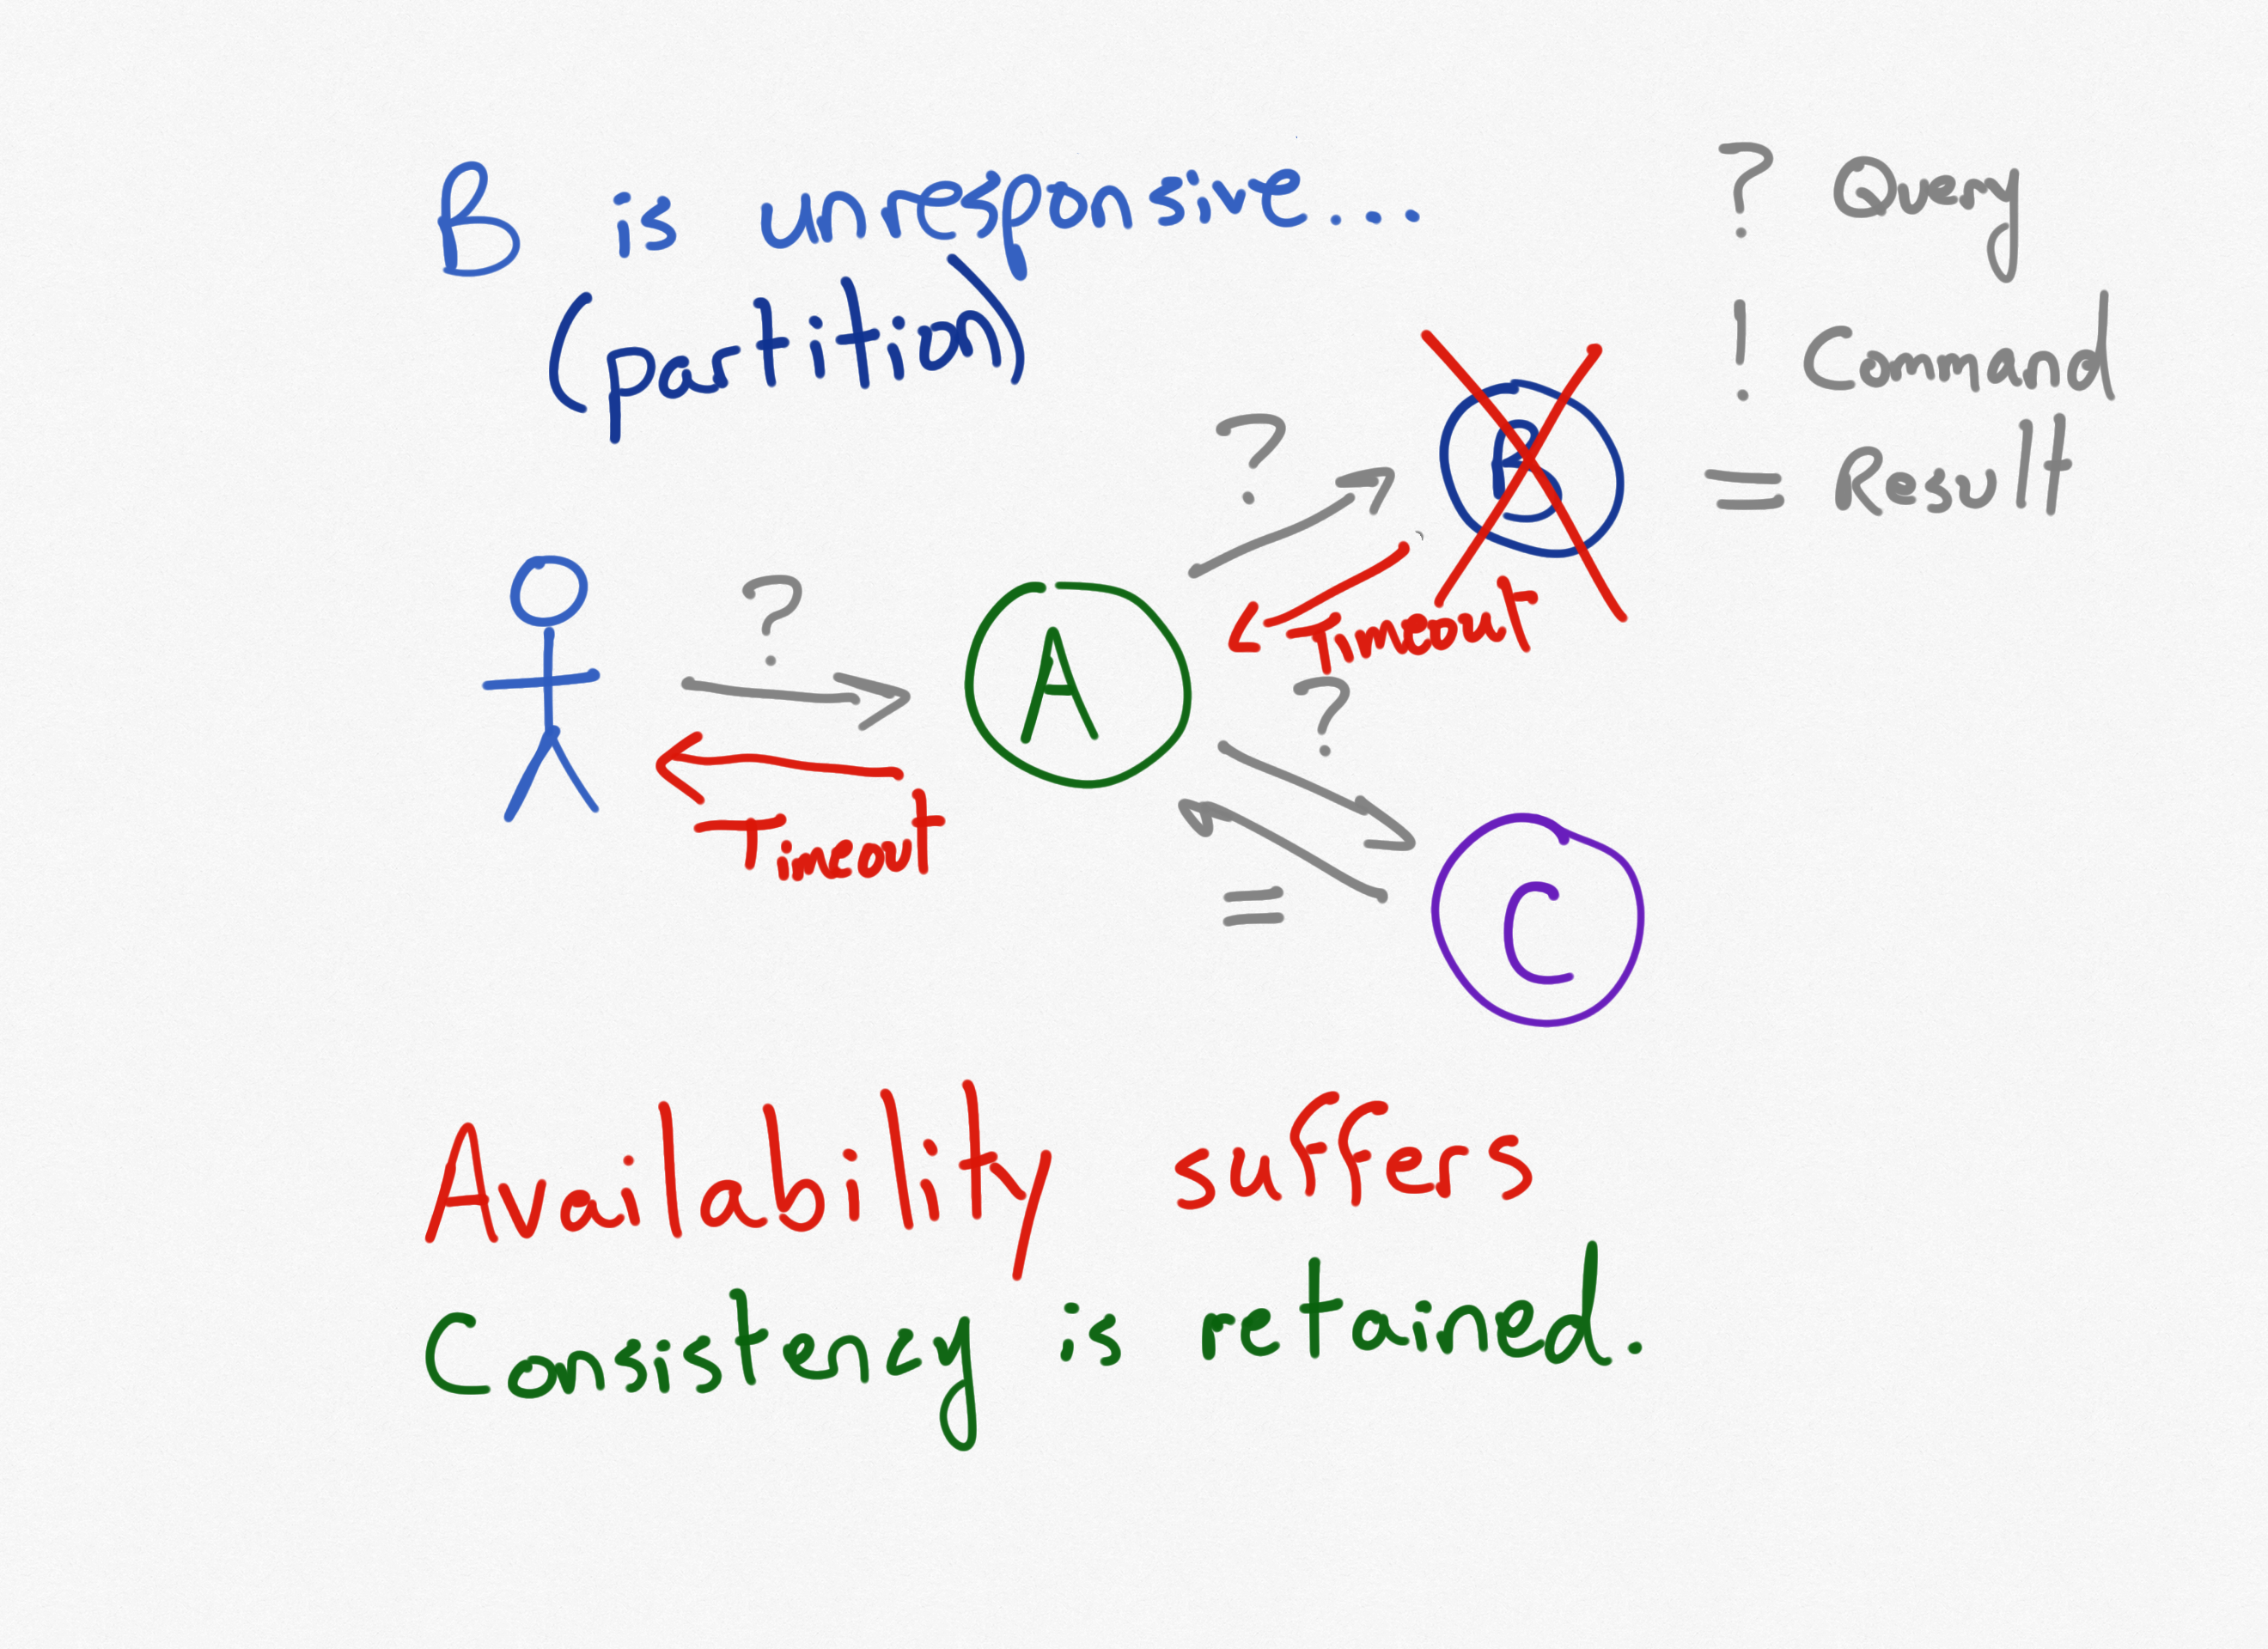 B is unresponsive...
(partition)
? Query
! Command
= Result
?
B
Timeout
?
A
Timeout
?
=
C
Availability suffers
Consistency is retained.